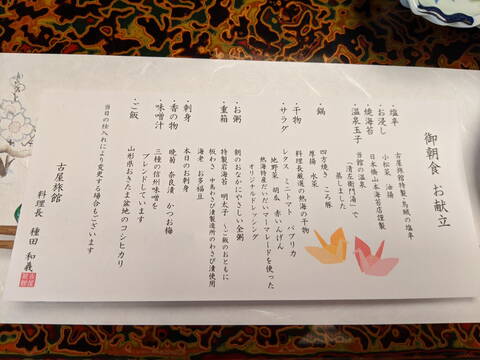 御朝食 お献立
・塩辛 古屋旅館特製・烏賊の塩辛
・お浸し 小松菜 油揚
・焼海苔 日本橋山本海苔店謹製
・温泉玉子 当館の温泉「清左衛門湯」で
蒸しました
・鍋 四方焼き ころ豚
厚揚 水菜
・干物 料理長厳選の熱海の干物
・サラダ レタス ミニトマト パプリカ
地野菜 胡瓜 赤いんげん
熱海特産だいだいマーマレードを使った
オリジナルドレッシング
・お粥 朝のおなかにやさしい全粥
・重箱 特製岩海苔 明太子 ~ご飯のおともに
板わさ・中島わさび漬製造所のわさび漬使用
海老 お多福豆
・刺身 本日のお刺身
・香の物 晩菊 奈良漬 かつお梅
・味噌汁 三種の信州米噌を
ブレンドしています
・ご飯 山形県おきたま盆地のコシヒカリ
当日の仕入れにより変更する場合もございます
古屋旅館
料理長 種田 和義